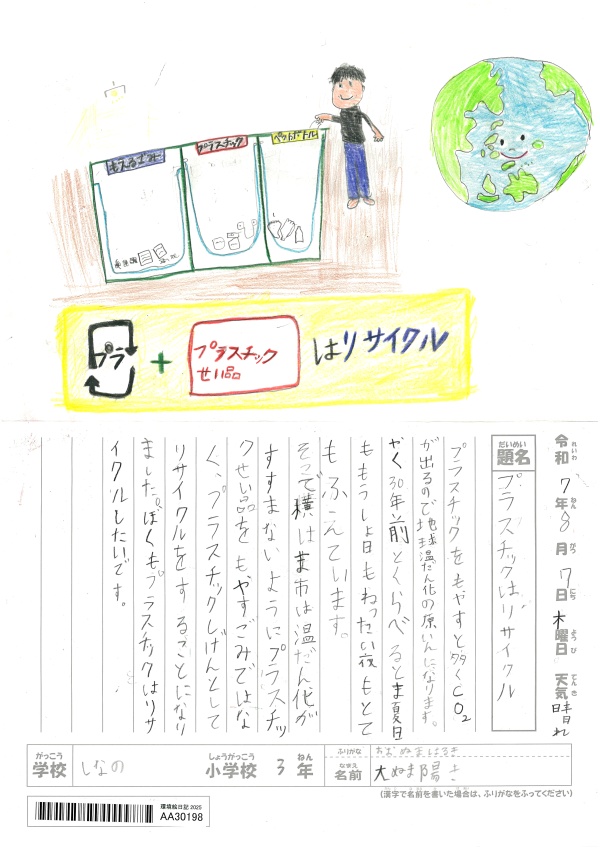 もえるゴミ
プラスチック
ペットボトル
プラ
+
プラスチック
せい品
はリサイクル
令和7年8月7日木曜日 天気晴れ
れいわ ねん がつ にち ようび てんき
だいめい
題名
プラスチックはリサイクル
プラスチックをもやすと多くCO2
が出るので地球温だん化の原いんになります。
やく30年前とくらべるとま夏日
ももうしょ日もねったい夜もとて
もふえています。
そこで横はま市は温だん化が
すすまないようにプラスチッ
クせい品をもやすごみではな
く、プラスチックしげんとして
リサイクルをすることになり
ました。ぼくもプラスチックはリサ
イクルしたいです。
がっこう
学校
しなの
しょうがっこう ねん
小学校 3年
ふりがな
おおぬまはるき
なまえ
名前
大ぬま陽き
(漢字で名前を書いた場合は、ふりがなをふってください)
環境絵日記 2025
AA30198